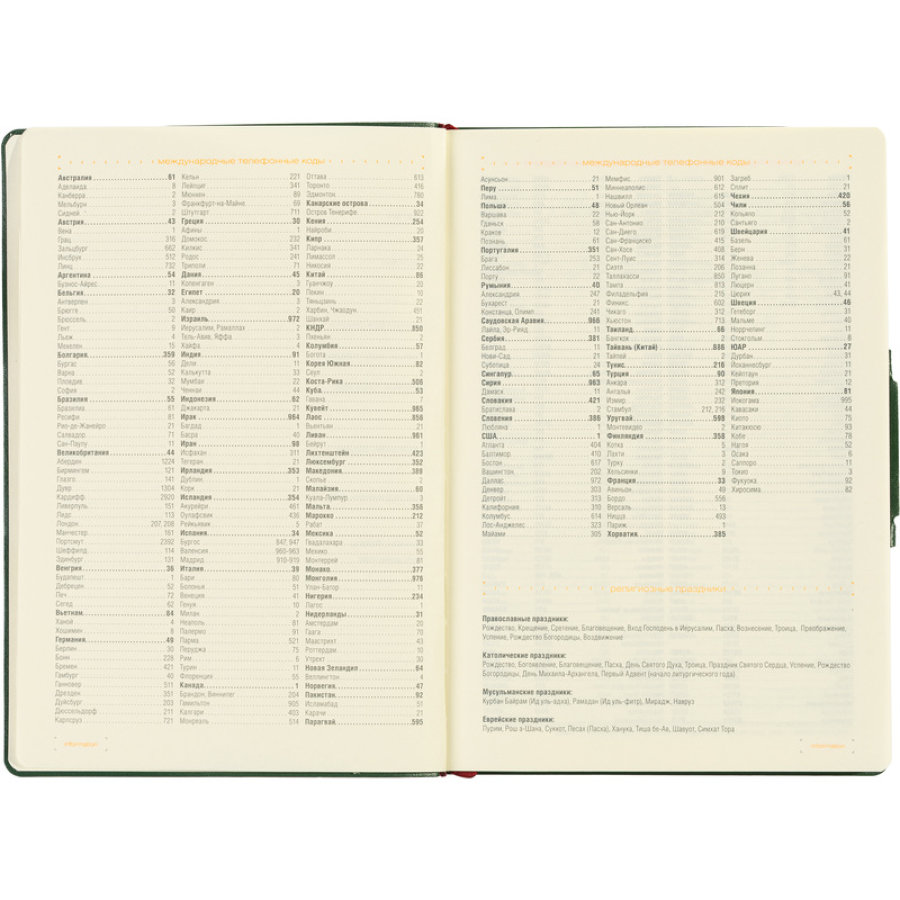 международные телефонные коды
Австралия 61
Аделаида 8
Канберра 2
Мельбурн 3
Сидней 2
Австрия 43
Вена 1
Грац 316
Зальцбург 662
Инсбрук 512
Линц 732
Аргентина 54
Буэнос-Айрес 11
Бельгия 32
Антверпен 3
Брюгге 50
Брюссель 2
Гент 9
Льеж 4
Мехелен 15
Болгария 359
Бургас 56
Варна 52
Пловдив 32
София 2
Бразилия 55
Бразилиа 61
Ресифи 81
Рио-де-Жанейро 21
Салвадор 71
Сан-Паулу 11
Великобритания 44
Абердин 1224
Бирмингем 121
Глазго 141
Дувр 1304
Кардифф 2920
Ливерпуль 151
Лидс 113
Лондон 207, 208
Манчестер 161
Портсмут 2392
Шеффилд 114
Эдинбург 131
Венгрия 36
Будапешт 1
Дебрецен 52
Печ 72
Сегед 62
Вьетнам 84
Ханой 4
Хошимин 8
Германия 49
Берлин 30
Бонн 228
Бремен 421
Гамбург 40
Ганновер 511
Дрезден 351
Дуйсбург 203
Дюссельдорф 211
Карлсруэ 721
Кельн 221
Лейпциг 341
Мюнхен 89
Франкфурт-на-Майне 69
Штутгарт 711
Греция 30
Афины 1
Домокос 232
Килкис 341
Родос 241
Триполи 71
Дания 45
Копенгаген 3
Египет 20
Александрия 3
Каир 2
Израиль 972
Иерусалим, Рамаллах 2
Тель-Авив, Яффа 3
Хайфа 4
Индия 91
Дели 11
Калькутта 33
Мумбаи 22
Ченнаи 44
Индонезия 62
Джакарта 21
Ирак 964
Багдад 1
Басра 40
Иран 98
Исфахан 311
Тегеран 21
Ирландия 353
Дублин 1
Корк 21
Исландия 354
Акурейри 461
Оулафсвик 436
Рейкьявик 5
Испания 34
Бургос 847, 947
Валенсия 960-963
Мадрид 910-919
Италия 39
Бари 80
Болонья 51
Венеция 41
Генуя 10
Милан 2
Неаполь 81
Палермо 91
Парма 521
Перуджа 75
Рим 6
Турин 11
Флоренция 55
Канада 1
Брандон, Виннипег 204
Гамильтон 905
Калгари 403
Монреаль 514
Оттава 613
Торонто 416
Эдмонтон 780
Канарские острова 34
Остров Тенерифе 922
Кения 254
Найроби 20
Кипр 357
Ларнака 24
Лимассол 25
Никосия 22
Китай 86
Гуанчжоу 20
Пекин 10
Тяньцзинь 22
Харбин, Чжаодун 451
Шанхай 21
КНДР 850
Пхеньян 2
Колумбия 57
Богота 1
Корея Южная 82
Сеул 2
Коста-Рика 506
Куба 53
Гавана 7
Кувейт 965
Лаос 856
Вьентьян 21
Ливан 961
Бейрут 1
Лихтенштейн 423
Люксембург 352
Македония 389
Скопье 2
Малайзия 60
Куала-Лумпур 3
Мальта 356
Марокко 212
Рабат 37
Мексика 52
Гвадалахара 33
Мехико 55
Монтеррей 81
Монако 377
Монголия 976
Улан-Батор 11
Нигерия 234
Лагос 1
Нидерланды 31
Амстердам 20
Гаага 70
Маастрихт 43
Роттердам 10
Утрехт 30
Новая Зеландия 64
Веллингтон 4
Норвегия 47
Пакистан 92
Исламабад 51
Карачи 21
Парагвай 595
information
международные телефонные коды
Асунсьон 21
Перу 51
Лима 1
Польша 48
Варшава 22
Гданьск 58
Краков 12
Познань 61
Португалия 351
Брага 253
Лиссабон 21
Порту 22
Румыния 40
Александрия 247
Бухарест 21
Констанца, Олимп 241
Саудовская Аравия 966
Лайла, Эр-Рияд 1
Сербия 381
Белград 11
Нови-Сад 21
Суботица 24
Сингапур 65
Сирия 963
Дамаск 11
Словакия 421
Братислава 2
Словения 386
Любляна 1
США 1
Атланта 404
Балтимор 410
Бостон 617
Вашингтон 202
Даллас 972
Денвер 303
Детройт 313
Калифорния 310
Колумбус 614
Лос-Анджелес 323
Майами 305
Мемфис 901
Миннеаполис 612
Нашвилл 615
Новый Орлеан 504
Нью-Йорк 212
Сан-Антонио 210
Сан-Диего 619
Сан-Франциско 415
Сан-Хосе 408
Сент-Луис 314
Сиэтл 206
Таллахасси 850
Тампа 813
Филадельфия 215
Финикс 602
Чикаго 312
Хьюстон 713
Таиланд 66
Бангкок 2
Тайвань (Китай) 886
Тайпей 2
Тунис 216
Турция 90
Анкара 312
Анталья 242
Измир 232
Стамбул 212, 216
Уругвай 598
Монтевидео 2
Финляндия 358
Котка 5
Лахти 3
Турку 2
Хельсинки 9
Франция 33
Авиньон 49
Бордо 556
Версаль 13
Ницца 493
Париж 1
Хорватия 385
Загреб 1
Сплит 21
Чехия 420
Чили 56
Копьяпо 52
Сантьяго 2
Швейцария 41
Базель 61
Берн 31
Женева 22
Лозанна 21
Лугано 91
Люцерн 41
Цюрих 43, 44
Швеция 46
Гетеборг 31
Мальме 40
Норрчепинг 11
Стокгольм 8
ЮАР 27
Дурбан 31
Йоханнесбург 11
Кейптаун 21
Претория 12
Япония 81
Иокогама 995
Кавасаки 44
Киото 75
Китакюсю 93
Кобе 78
Нагоя 52
Осака 6
Саппоро 11
Токио 3
Фукуока 92
Хиросима 82
религиозные праздники
Православные праздники:
Рождество, Крещение, Сретение, Благовещение, Вход Господень в Иерусалим, Пасха, Вознесение, Троица, Преображение,
Успение, Рождество Богородицы, Воздвижение
Католические праздники:
Рождество, Богоявление, Благовещение, Пасха, День Святого Духа, Троица, Праздник Святого Сердца, Успение, Рождество
Богородицы, День Михаила-Архангела, Первый Адвент (начало литургического года)
Мусульманские праздники:
Курбан Байрам (Ид уль-адха), Рамадан (Ид уль-фитр), Мирадж, Навруз
Еврейские праздники:
Пурим, Рош а-Шана, Суккот, Песах (Пасха), Ханука, Тиша бе-Ав, Шавуот, Симхат Тора
information